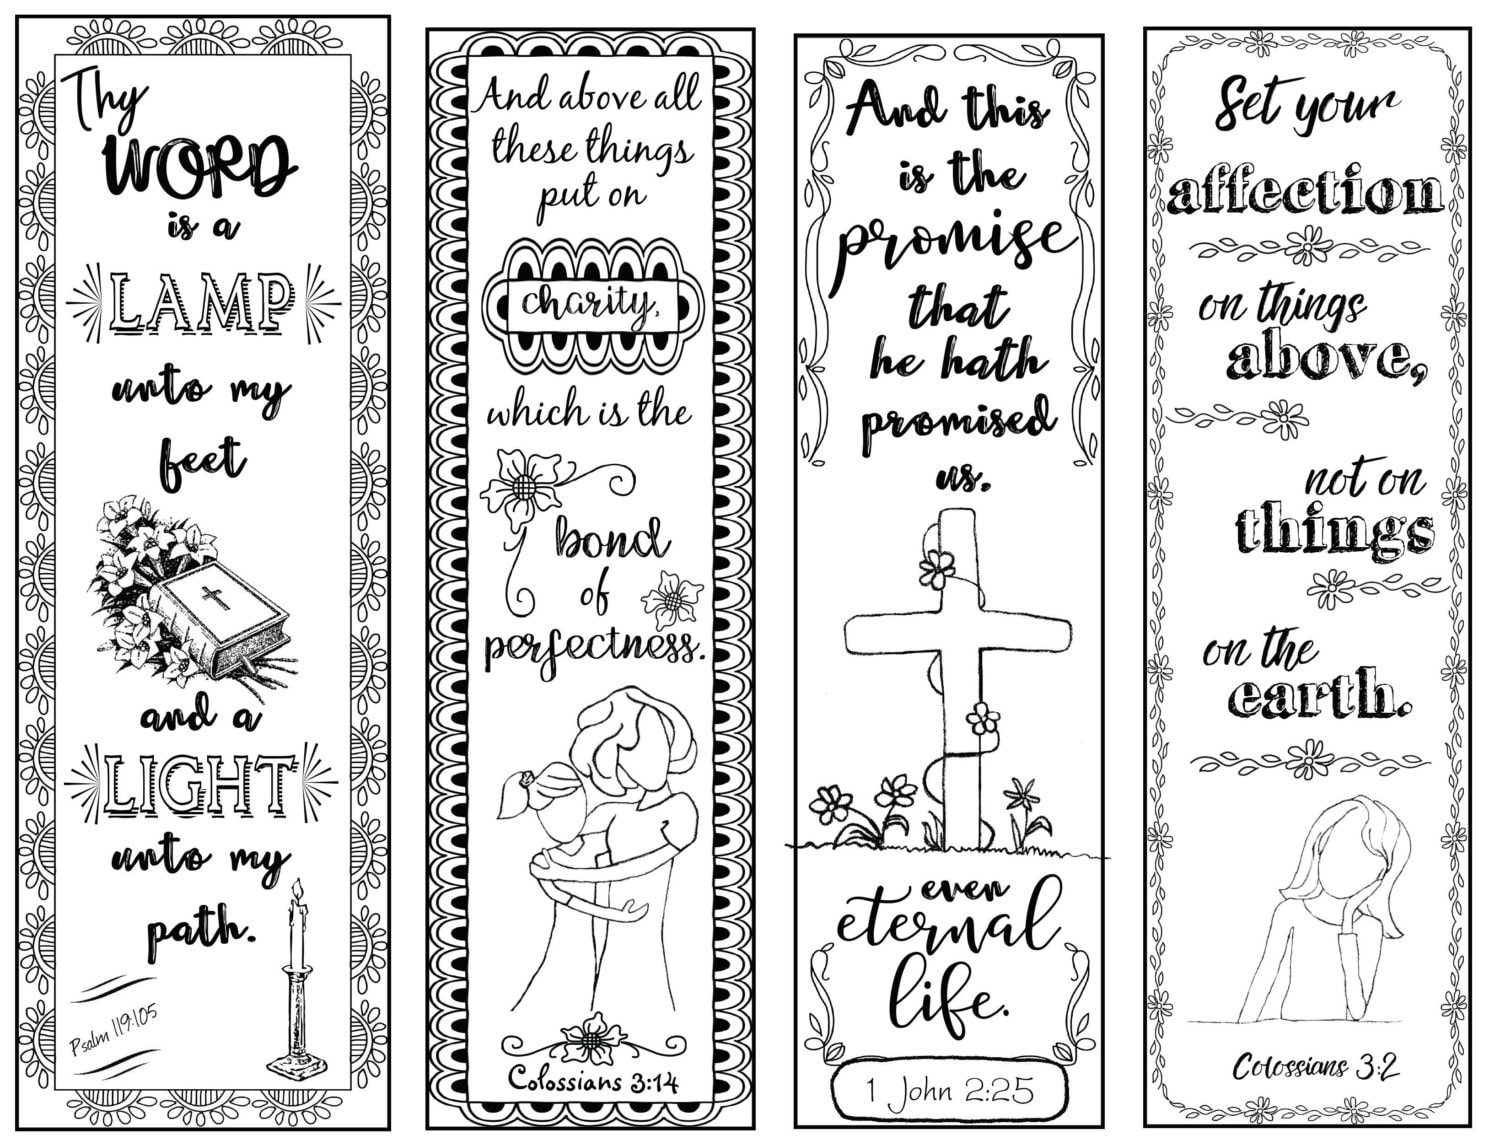 Thy
WORD
is a
LAMP
unto my
feet
and a
LIGHT
unto my
path.
Psalm 119:105
And above all
these things
put on
charity,
which is the
bond
of
perfectness.
Colossians 3:14
And this
is the
promise
that
he hath
promised
us,
even
eternal
life.
1 John 2:25
Set your
affection
on things
above,
not on
things
on the
earth.
Colossians 3:2